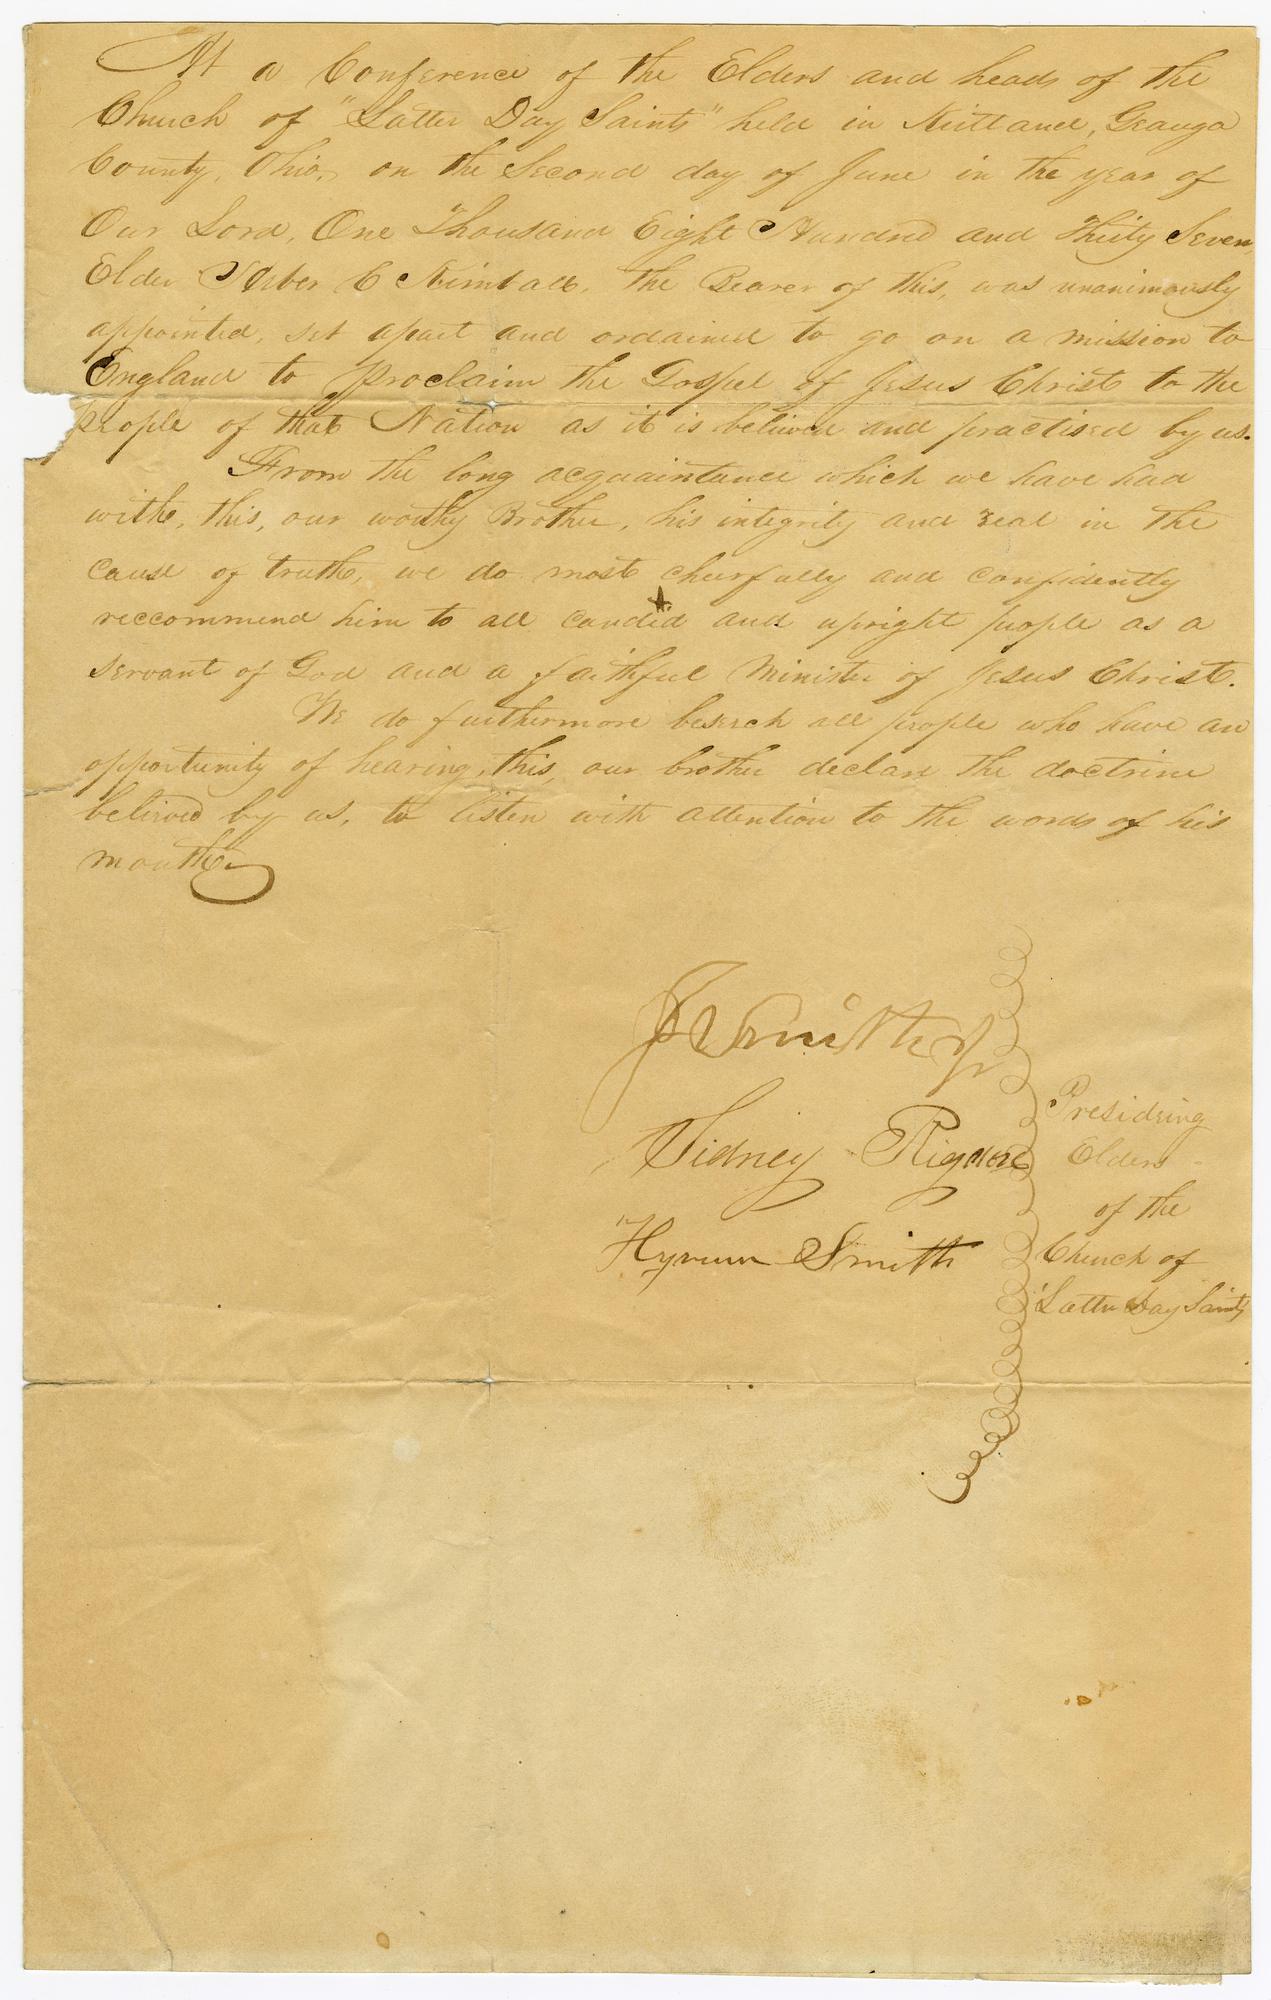 At a Conference of the Elders and heads of the
Church of "Latter Day Saints" held in Kirtland, Geauga
County, Ohio, on the Second day of June in the year of
Our Lord, One Thousand Eight Hundred and Thirty Seven,
Elder Heber C Kimball, the Bearer of this, was unanimously
appointed, set apart and ordained to go on a mission to
England to proclaim the Gospel of Jesus Christ to the
people of that Nation as it is believed and practised by us.
From the long acquaintance which we have had
with, this, our worthy Brother, his integrity and zeal in the
cause of truth, we do most cheerfully and confidently
reccommend him to all candid and upright people as a
servant of God and a faithful Minister of Jesus Christ.
We do furthermore beseech all people who have an
opportunity of hearing, this, our brother declare the doctrine
believed by us, to listen with attention to the words of his
mouth.
J Smith Jr
Sidney Rigdon
Hyrum Smith
Presideing
Elders
of the
Church of
Latter Day Saints